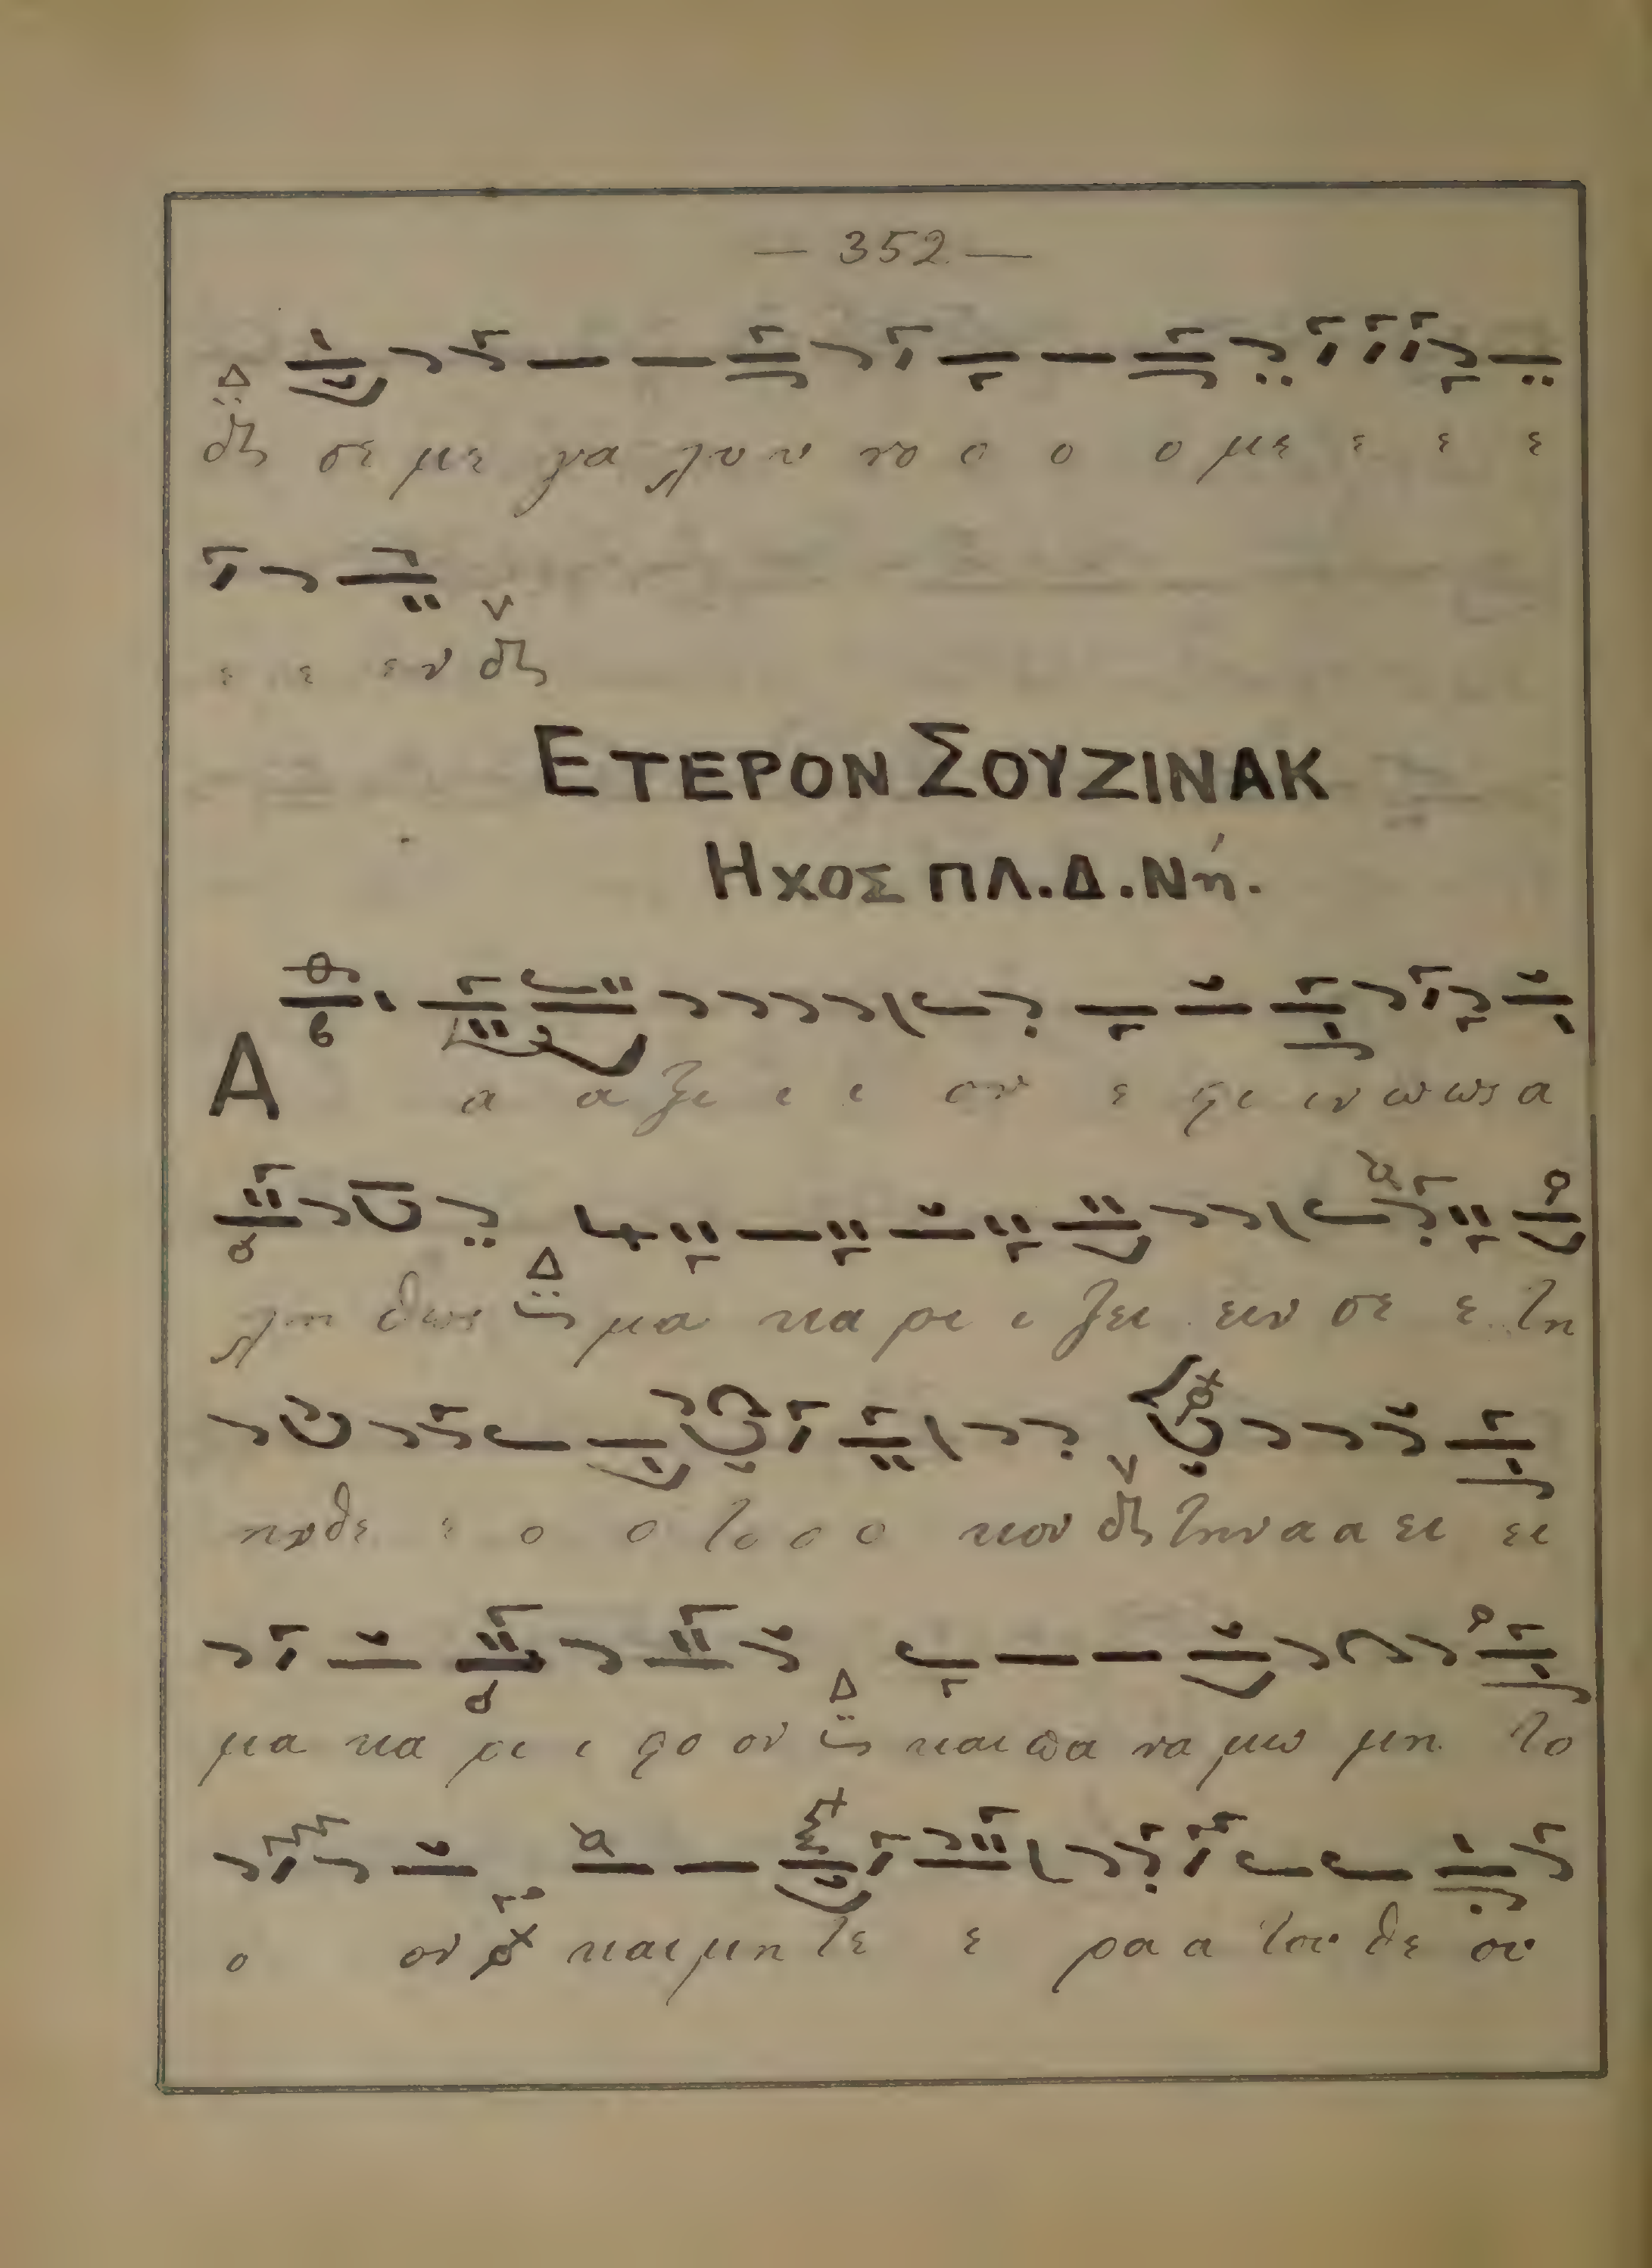 — 352 —
σε με γα λυ υ νο ο ο ο με ε ε ε
ε ε ε ν
ΕΤΕΡΟΝ ΣΟΥΖΙΝΑΚ
ΗΧΟΣ ΠΛ.Δ.Νή.
Α α α ξι ι ι ον ε ςι ιν ω ως α
λη θως μα κα ρι ι ζει ειν σε ε τη
ην θε ε ο ο το ο ο κον την α α ει ει
μα κα ρι ι ςο ον και πα να μω μη το
ο ον και μη τε ε ρα α του θε ου